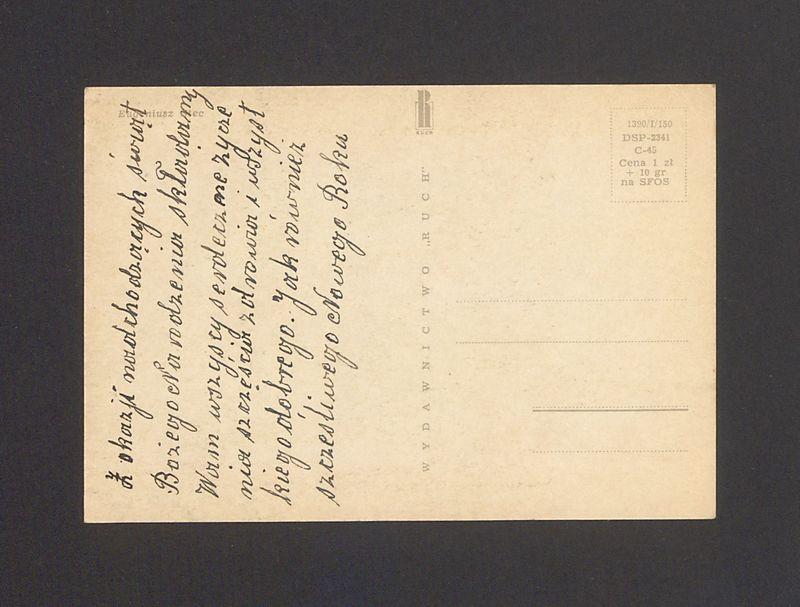 Eugeniusz
Z okazji nadchodzących świąt
Bożego Narodzenia składamy
Wam wszyscy serdeczne życze
nia szczęścia zdrowia i wszyst
kiego dobrego. Jak również
szczęśliwego Nowego Roku
RUCH
WYDAWNICTWO „RUCH"
1390/I/150
DSP-2341
C-45
Cena 1 zł
+ 10 gr
na SFOS